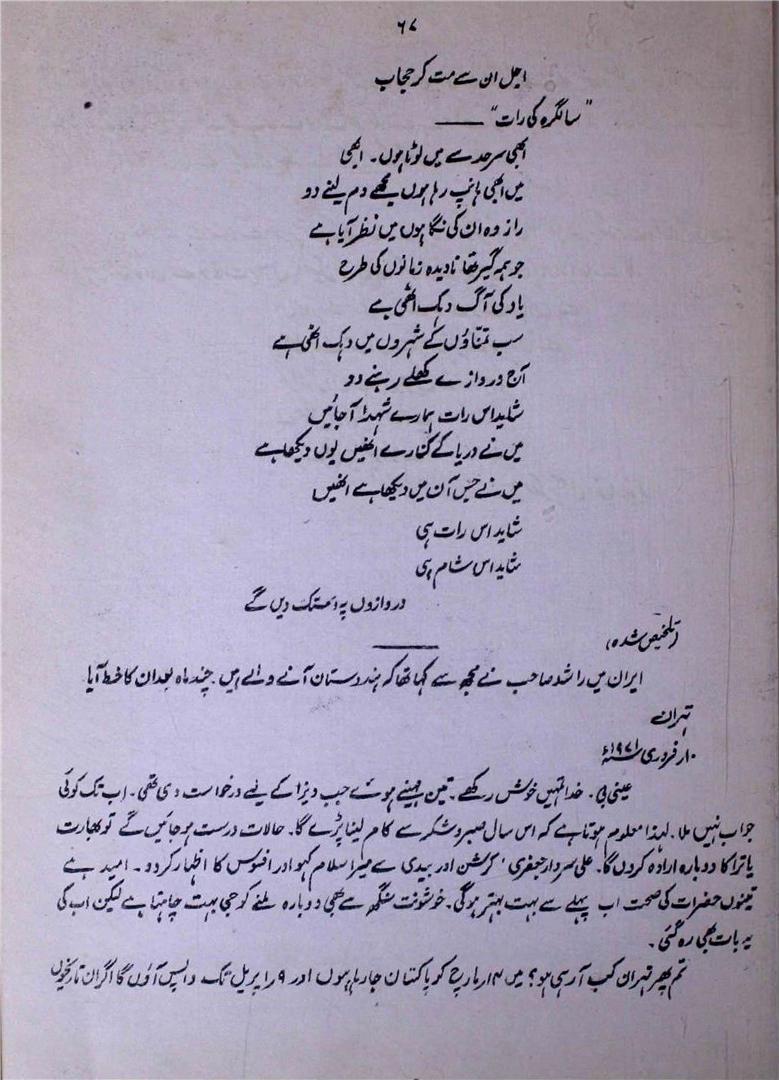 ۶۷
اجل ان سے مت کر حجاب
"سالگرہ کی رات" ——
ابھی سرحد سے میں لوٹا ہوں۔ ابھی
میں ابھی ہانپ رہا ہوں مجھے دم لینے دو
راز وہ ان کی نگاہوں میں نظر آیا ہے
جو ہمہ گیر تھا نادیدہ زمانوں کی طرح
یاد کی آگ دہک اٹھی ہے
سب تمنّاؤں کے شہروں میں دہک اٹھی ہے
آج دروازے کھلے رہنے دو
شاید اس رات ہمارے شہدا آ جائیں
میں نے دریا کے کنارے انھیں یوں دیکھا ہے
میں نے جس آن میں دیکھا ہے انھیں
شاید اس رات ہی
شاید اس شام ہی
دروازوں پہ دستک دیں گے
(تلخیص شدہ)
ایران میں راشد صاحب نے مجھ سے کہا تھا کہ ہندوستان آنے والے ہیں۔ چند ماہ بعد ان کا خط آیا
تہران
۱۰ر فروری ۱۹۷۱ء
عینی بی۔ خدا تمہیں خوش رکھے۔ تین مہینے ہوئے جب ویزا کے لیے درخواست دی تھی۔ اب تک کوئی
جواب نہیں ملا۔ لہذا معلوم ہوتا ہے کہ اس سال صبر و شکر سے کام لینا پڑے گا۔ حالات درست ہو جائیں گے تو بھارت
یاترا کا دوبارہ ارادہ کروں گا۔ علی سردار جعفری، کرشن اور بیدی سے میرا سلام کہو اور افسوس کا اظہار کر دو۔ امید ہے
تینوں حضرات کی صحت اب پہلے سے بہت بہتر ہوگی۔ خوشونت سنگھ سے بھی دوبارہ ملنے کو جی بہت چاہتا ہے لیکن اب کی
یہ بات بھی رہ گئی۔
تم پھر تہران کب آ رہی ہو؟ میں ۱۴ر مارچ کو پاکستان جا رہا ہوں اور ۹ر اپریل تک واپس آؤں گا اگر ان تاریخوں